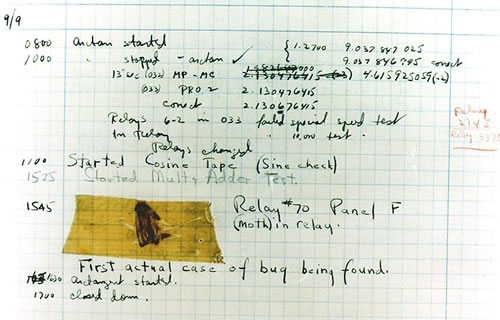 9/9
0800 antan started
1000 " stopped - antan ✓ { 1.2700 9.037 847 025
9.037 846 995 conect
13"uc (032) MP-MC 2.130476415 4.615925059(-2)
(033) PRO 2 2.130476415
conect 2.130676415
Relays 6-2 in 033 failed special speed test
in relay " 10.000 test.
Relays changed
Relay
3370
1100 Started Cosine Tape (Sine check)
1525 Started Mult+Adder Test.
1545 Relay #70 Panel F
(moth) in relay.
First actual case of bug being found.
1630 antangent started.
1700 closed down.